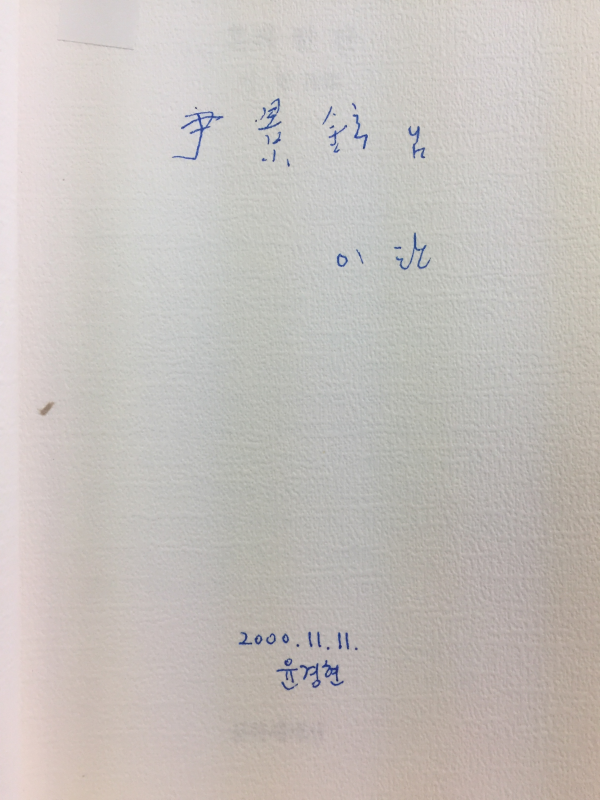 尹 景 鉉 님
이 탄
2000.11.11.
윤경현